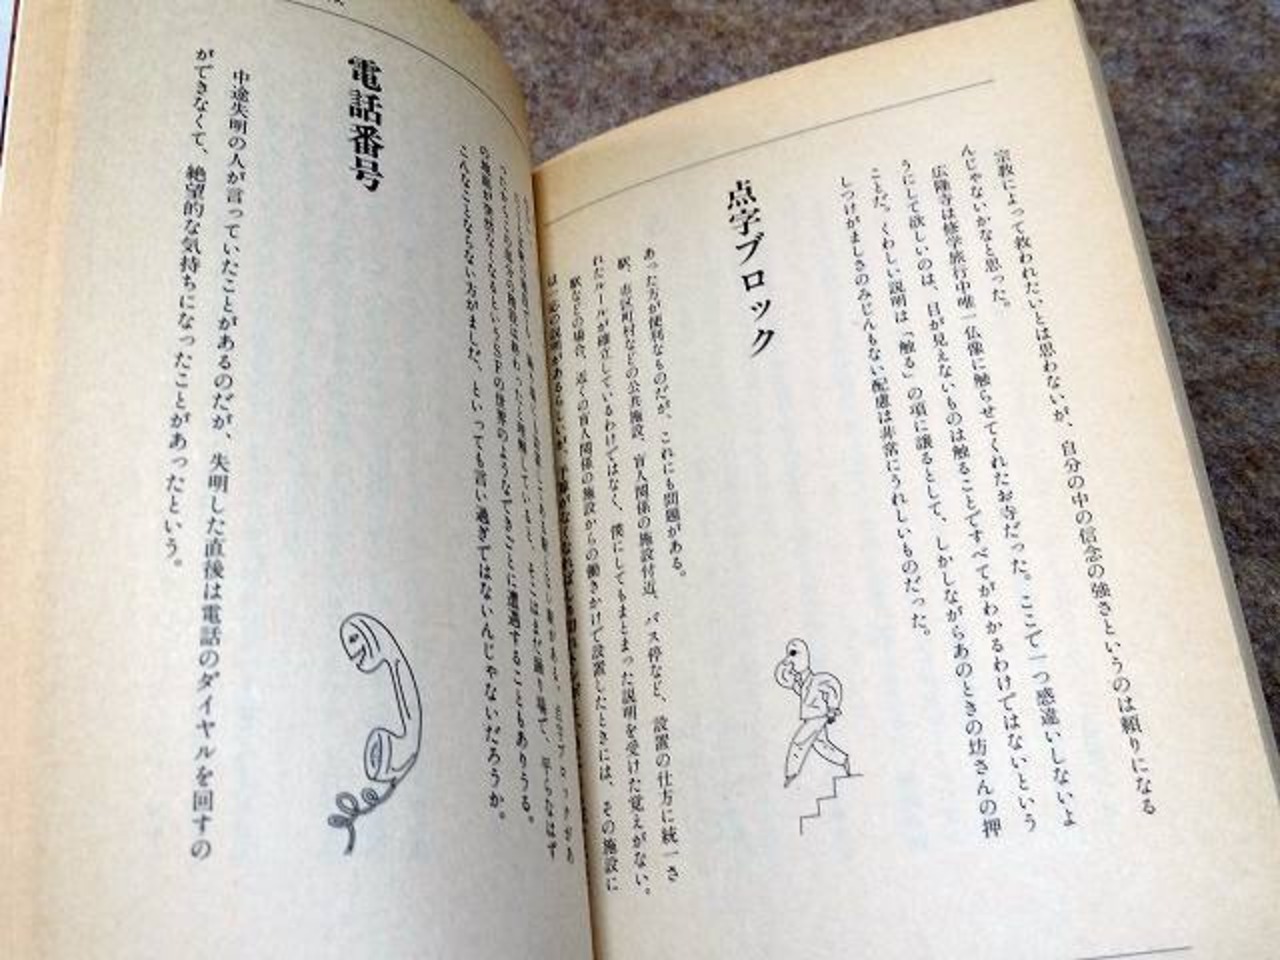 宗教によって救われたいとは思わないが、自分の中の信念の強さというのは頼りになる
んじゃないかなと思った。
広隆寺は修学旅行中唯一仏像に触らせてくれたお寺だった。ここで一つ感違いしないよ
うにして欲しいのは、目が見えないものは触ることですべてがわかるわけではないという
ことだ。くわしい説明は「触る」の項に譲るとして、しかしながらあのときの坊さんの押
しつけがましさのみじんもない配慮は非常にうれしいものだった。
点字ブロック
あった方が便利なものだが、これにも問題がある。
駅、市区町村などの公共施設、盲人関係の施設付近、バス停など、設置の仕方に統一さ
れたルールが確立しているわけではなく、僕にしてもまとまった説明を受けた覚えがない。
駅などの場合、近くの盲人関係の施設からの働きかけで設置したときには、その施設に
は一応の説明があるらしいが、
の地面が突然なくなるというSFの世界のようなできごとに遭遇することもありうる。
こんなことならない方がましだ、といっても言い過ぎではないんじゃないだろうか。
電話番号
中途失明の人が言っていたことがあるのだが、失明した直後は電話のダイヤルを回すの
ができなくて、絶望的な気持ちになったことがあったという。